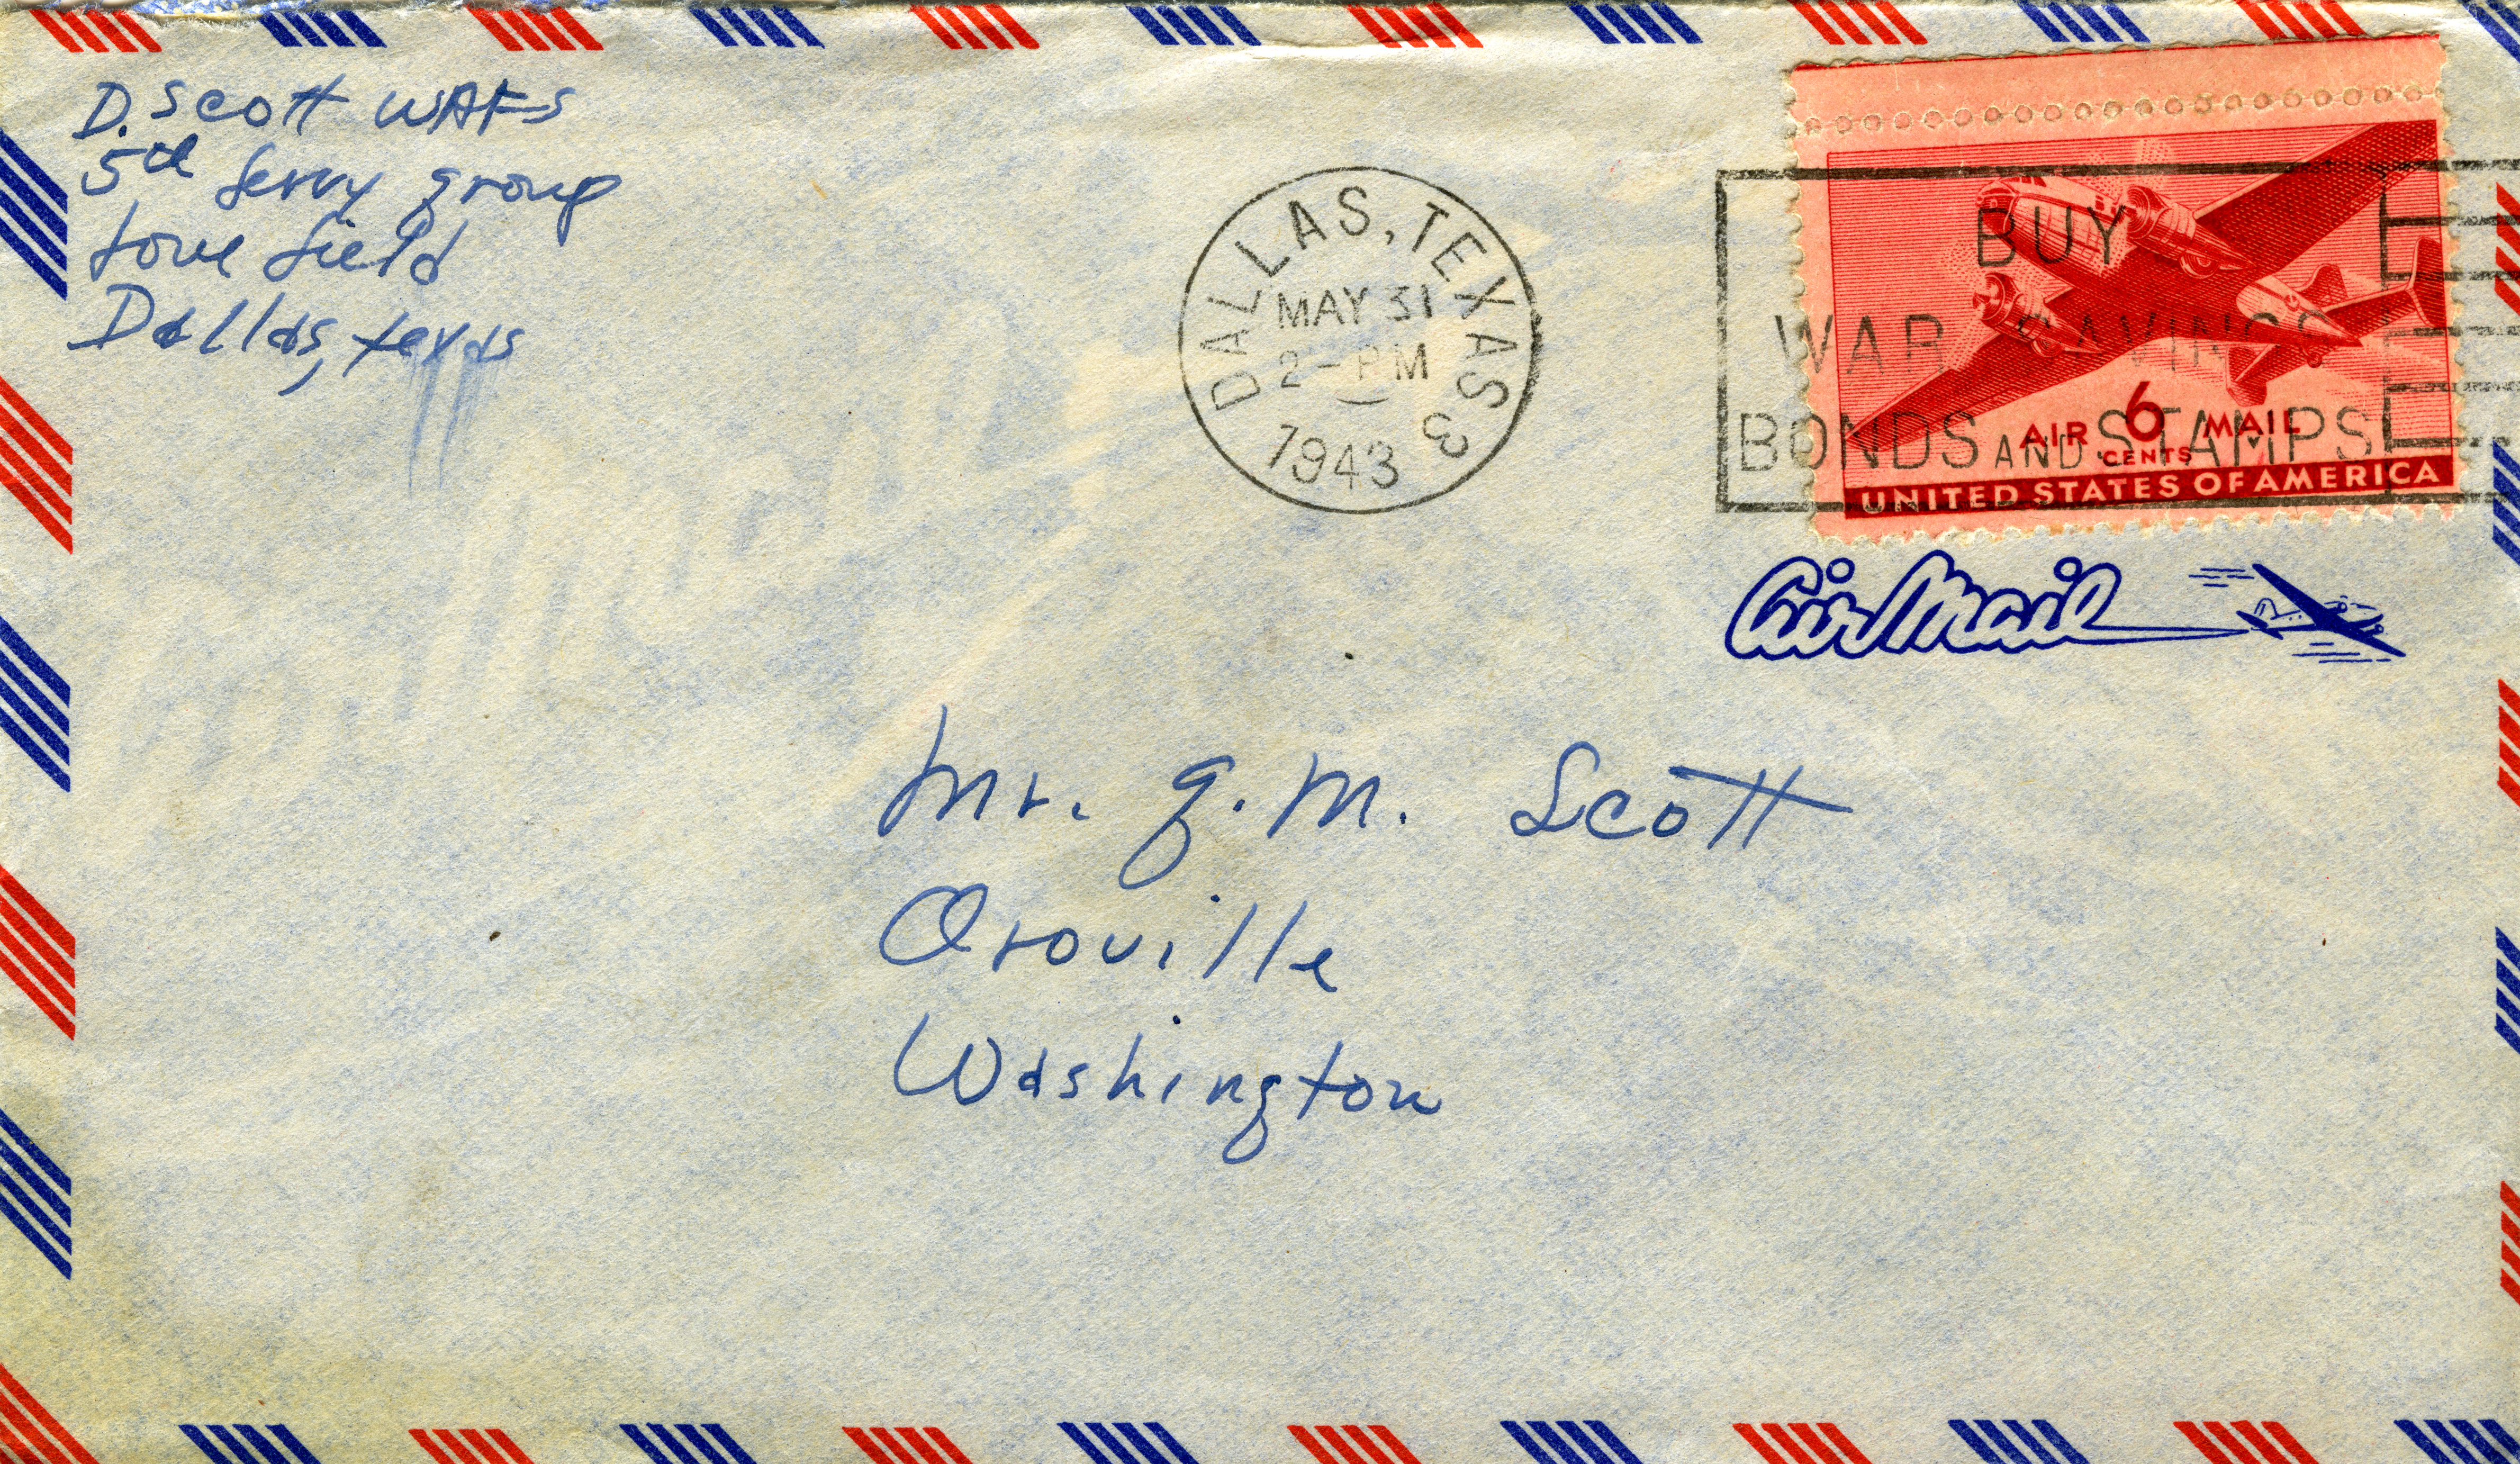 D. Scott WAFS
5th ferry group
Love field
Dallas, texas
DALLAS, TEXAS 3
MAY 31
2 - PM
1943
BUY
WAR SAVINGS
BONDS AND STAMPS
AIR 6 MAIL
CENTS
UNITED STATES OF AMERICA
Air Mail
Mr. G. M. Scott
Oroville
Washington